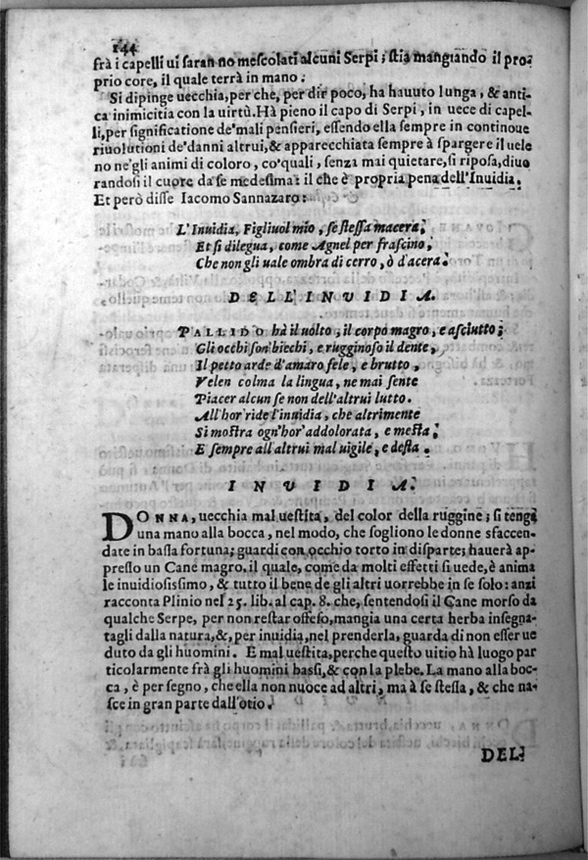 144
frà i capelli ui saran no mescolati alcuni Serpi; stia mangiando il pro-
prio core, il quale terrà in mano.
Si dipinge uecchia, per che, per dir poco, ha hauuto lunga, & anti-
ca inimicitia con la uirtù. Hà pieno il capo di Serpi, in uece di capel-
li, per significatione de'mali pensieri, essendo ella sempre in continoue
riuolutioni de'danni altrui, & apparecchiata sempre à spargere il uele
no ne'gli animi di coloro, co'quali, senza mai quietare, si riposa, diuo
randosi il cuore da se medesima: il che è propria pena dell'Inuidia.
Et però disse Iacomo Sannazaro:
L'Inuidia, Figliuol mio, se stessa macera;
Et si dilegua, come Agnel per frascino,
Che non gli uale ombra di cerro, ò d'acera.
DELL'INVIDIA.
PALLIDO hà il uolto, il corpo magro, e asciutto;
Gli occhi son'biechi, e rugginoso il dente,
Il petto arde d'amaro fele, e brutto,
Velen colma la lingua, ne mai sente
Piacer alcun se non dell'altrui lutto.
All'hor'ride l'inuidia, che altrimente
Si mostra ogn'hor'addolorata, e mesta;
E sempre all'altrui mal uigile, e desta.
INVIDIA.
DONNA, uecchia mal uestita, del color della ruggine; si tenga
una mano alla bocca, nel modo, che sogliono le donne sfaccen-
date in bassa fortuna; guardi con occhio torto in disparte; hauerà ap-
presso un Cane magro, il quale, come da molti effetti si uede, è anima
le inuidiosissimo, & tutto il bene de gli altri uorrebbe in se solo: anzi
racconta Plinio nel 25. lib. al cap. 8. che, sentendosi il Cane morso da
qualche Serpe, per non restar offeso, mangia una certa herba insegna-
tagli dalla natura, &, per inuidia, nel prenderla, guarda di non esser ue
duto da gli huomini. E mal uestita, perche questo uitio hà luogo par
ticolarmente frà gli huomini bassi, & con la plebe. La mano alla boc-
ca, è per segno, che ella non nuoce ad altri, ma à se stessa, & che na-
sce in gran parte dall'otio.
DEL-